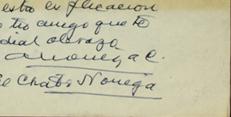 esta explicacion
tio amigo que te
dial abraza
Noriega C.
el Chato Noriega